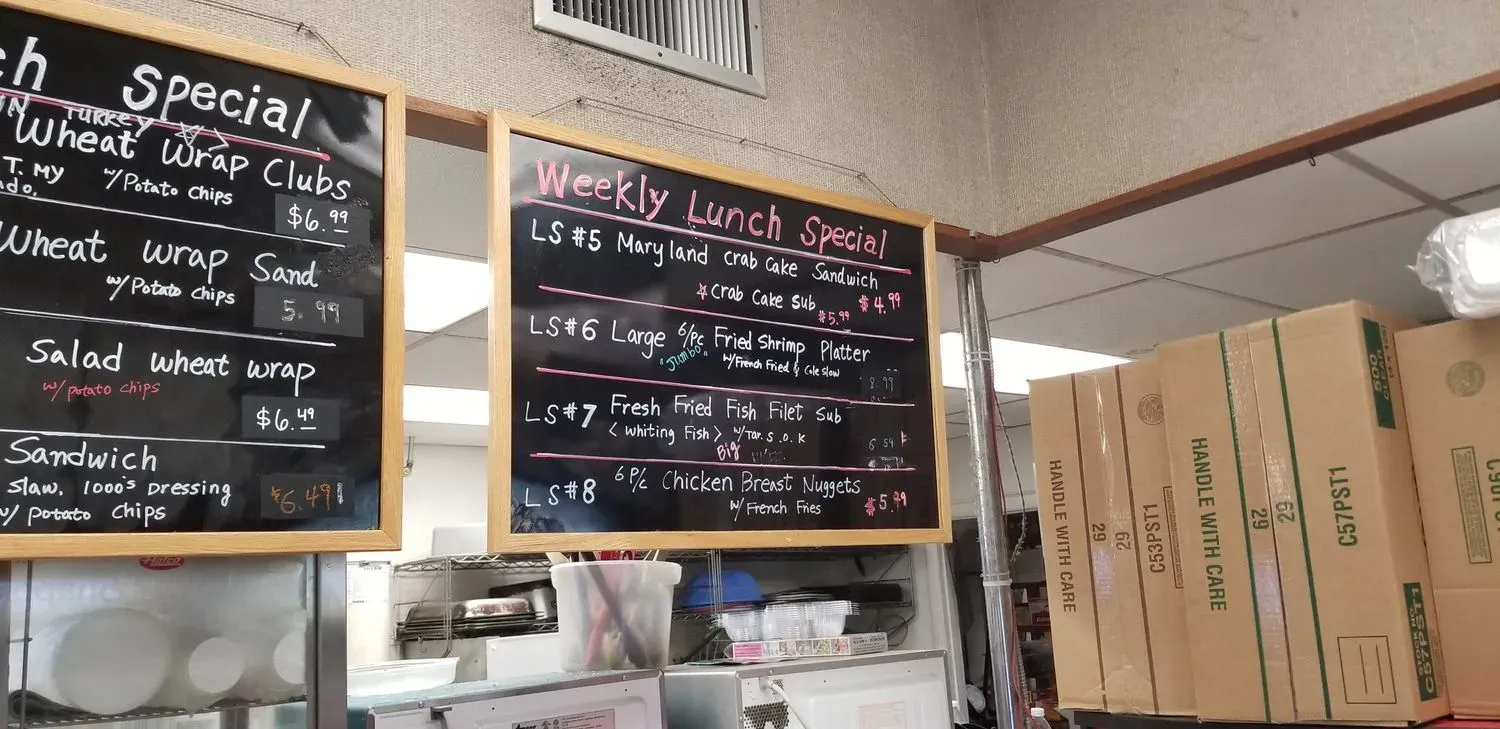 Special
TURKEY
Wheat Wrap Clubs
T. MY
w/Potato chips
$6.99
Wheat wrap Sand
w/Potato chips
5.99
Salad wheat wrap
w/ potato chips
$6.49
Sandwich
Slaw. 1000's Dressing
w/ potato chips
$6.49
Weekly Lunch Special
LS #5 Maryland crab cake Sandwich
$4.99
☆ Crab Cake Sub $5.99
LS#6 Large 6/Pc Fried Shrimp Platter
"Jumbo"
w/French Fried & Cole slow
8.99
LS#7 Fresh Fried Fish Filet Sub
< Whiting Fish > w/Tar. S. O. K
Big
6 59
LS#8 6 P/c Chicken Breast Nuggets
w/ French Fries
$5.99
Hatco
HANDLE WITH CARE
29
29
C53PST1
HANDLE WITH CARE
29
29
C57PST1
500
STOCK NO.
C57PST1